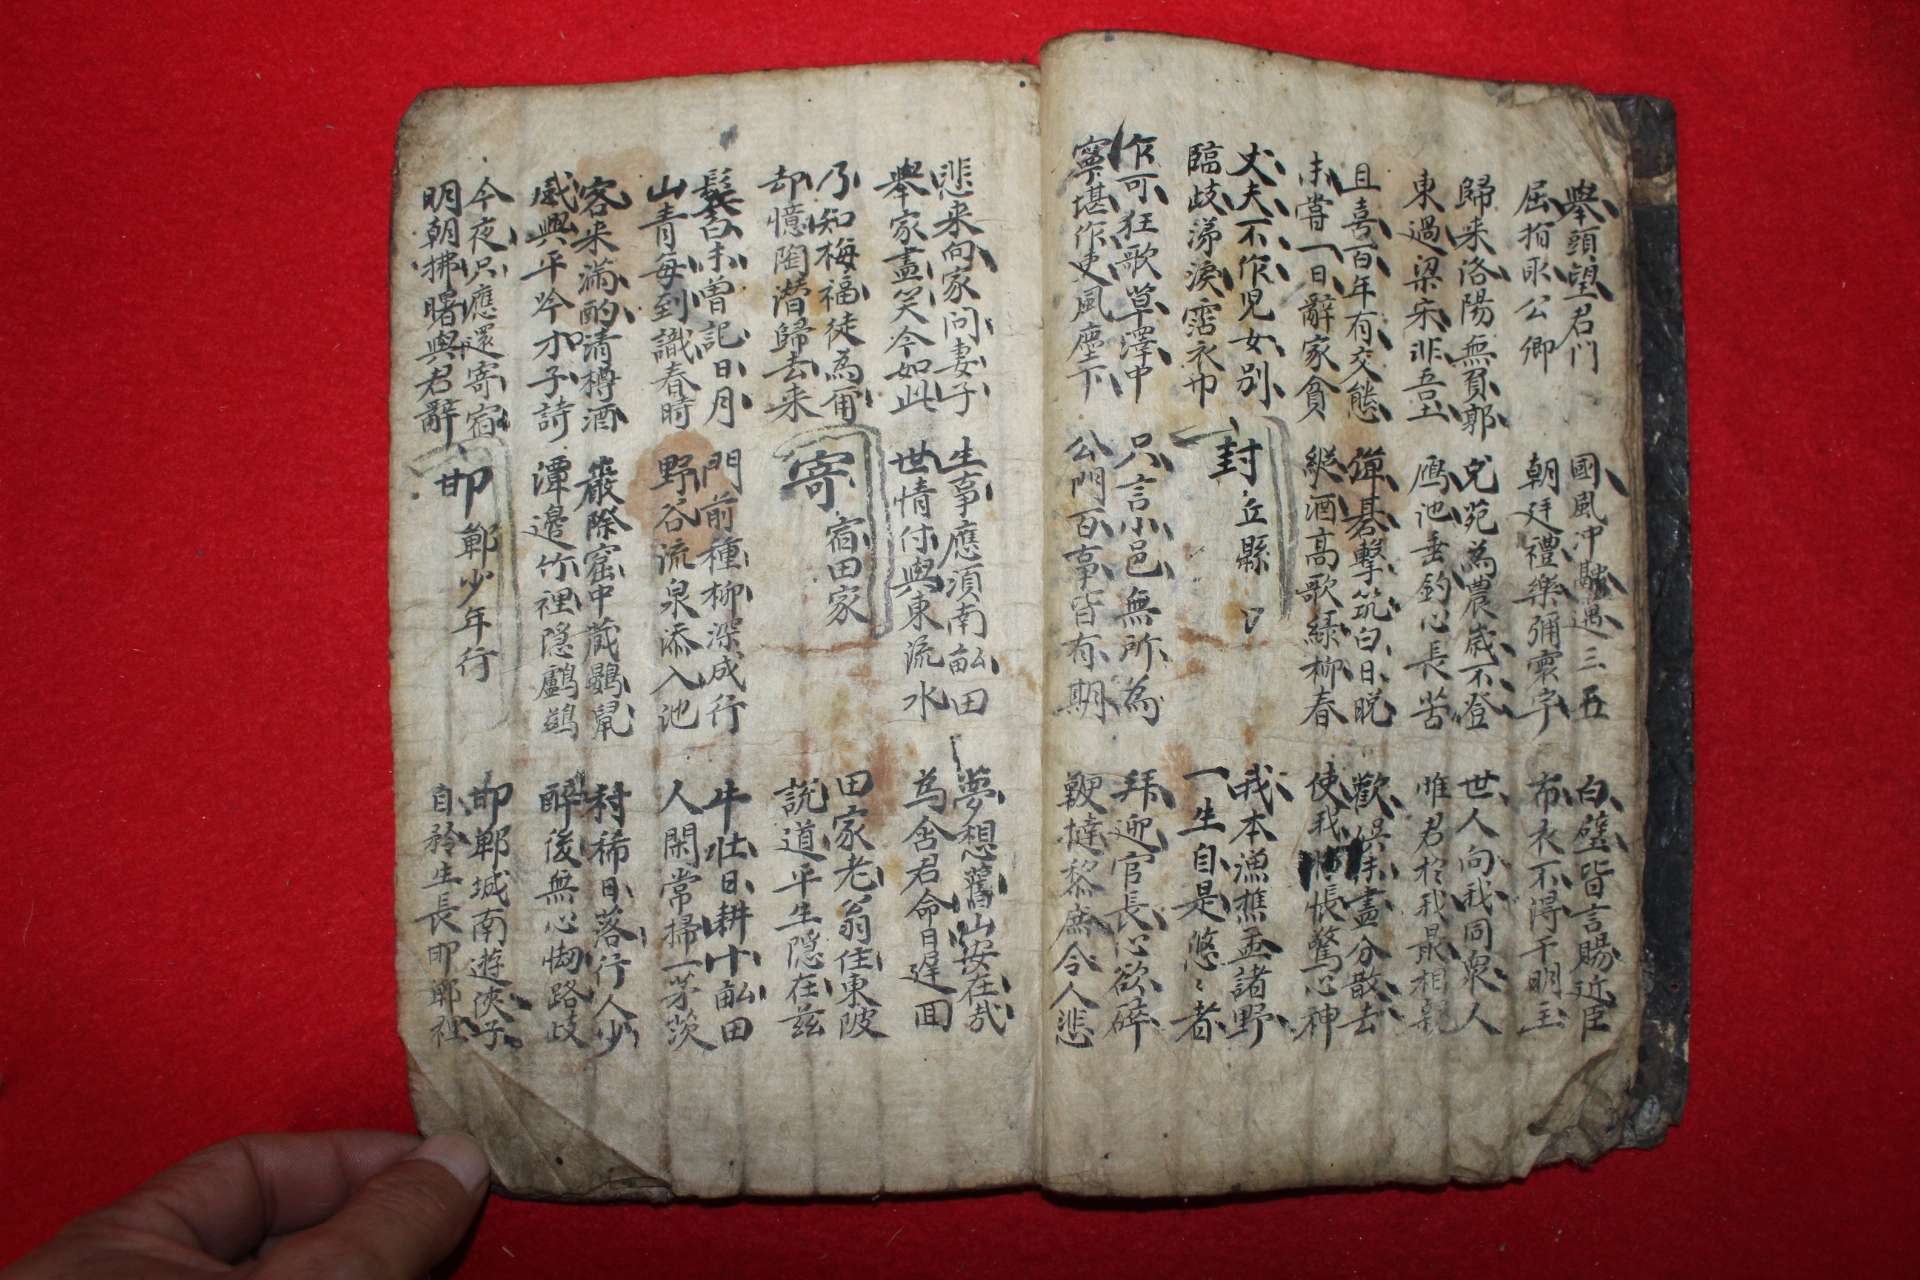 舉頭望君門
屈指取公卿
國風冲融邁三五
朝廷禮樂彌寰宇
白璧皆言賜近臣
布衣不得干明主
歸来洛陽無負郭
東過梁宋非吾土
兔苑為農歲不登
鴈池垂釣心長苦
世人向我同衆人
唯君於我最相親
且喜百年有交態
未嘗一日辭家貧
彈碁擊筑白日晩
縱酒高歌綠柳春
歡娛未盡分散去
使我惆悵驚心神
丈夫不作兒女別
臨歧涕淚霑衣巾
封丘縣
我本漁樵孟諸野
一生自是悠悠者
乍可狂歌草澤中
寧堪作吏風塵下
只言小邑無所為
公門百事皆有期
拜迎官長心欲碎
鞭撻黎庶令人悲
悲来向家問妻子
舉家盡笑今如此
生事應須南畝田
世情付與東流水
夢想舊山安在哉
為含君命日遲回
乃知梅福徒為爾
却憶陶潜歸去来
寄宿田家
田家老翁住東陂
說道平生隱在茲
鬂白未曾記日月
山青每到識春時
門前種柳深成行
野谷流泉添入池
牛壯日耕十畝田
人閑常掃一茅茨
客来滿酌清樽酒
感興平吟才子詩
巖際窟中藏鼴鼠
潭邊竹裡隱鸕鷀
村稀日落行人少
醉後無心㤼路歧
今夜只應還寄宿
明朝拂曙與君辭
邯鄲少年行
邯鄲城南遊俠子
自矜生長邯鄲裡